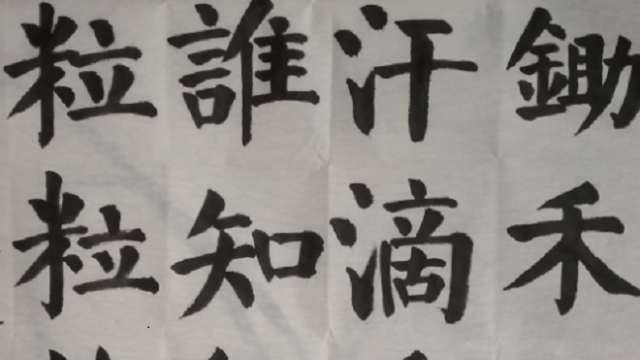 鋤禾
汗滴
誰知
粒粒